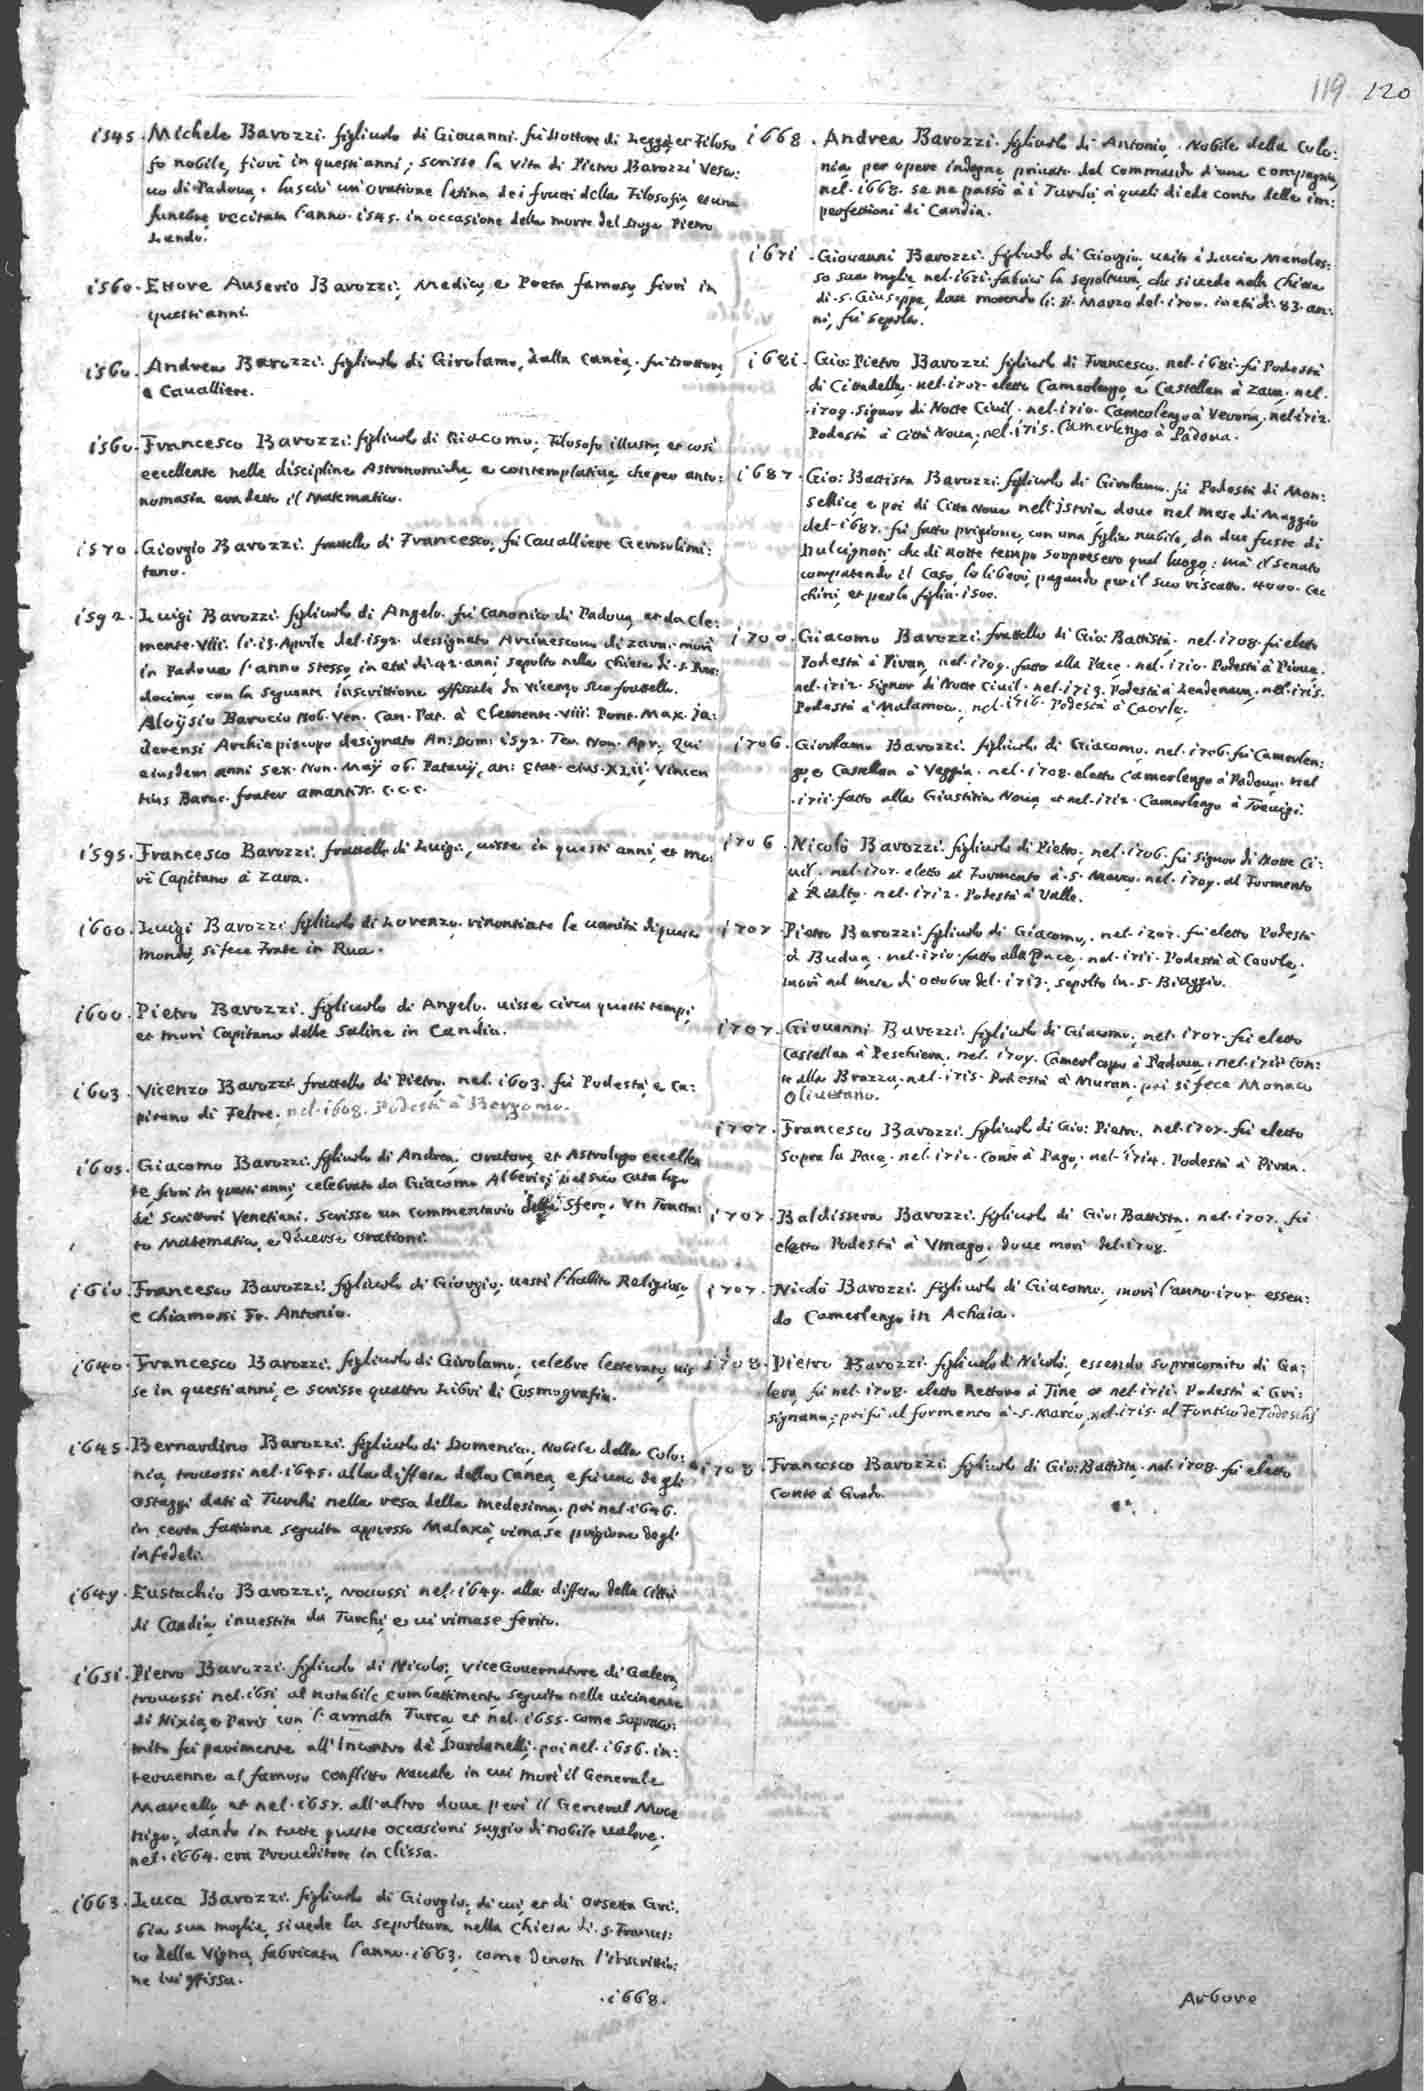 119 120
1545. Michele Barozzi. figliuolo di Giouanni. fù Dottore di Leggi, et Filoso
fo nobile, fiorì in questi anni; scrisse la vita di Pietro Barozzi Vesco:
uo di Padoua, lasciò un'oratione latina dei frutti della Filosofia, et una
funebre recitata l'anno. 1545. in occasione della morte del Doge Pietro
Lando.
1560. Ettore Auserio Barozzi; Medico, e Poeta famoso, fiorì in
questi anni.
1560. Andrea Barozzi. figliuolo di Girolamo, dalla Canèa, fù Dottore,
e Caualliere.
1560. Francesco Barozzi: figliuolo di Giacomo; Filosofo illustre, et così
eccellente nelle discipline Astronomiche, e contemplatiue, che per anto:
nomasia era detto il Matematico.
1570. Giorgio Barozzi. frattello di Francesco, fù Caualliere Gerosolimi:
tano.
1592. Luigi Barozzi. figliuolo di Angelo. fù Canonico di Padoua, et da Cle:
mente. VIII. li. 13. Aprile del. 1592. designato Arciuescouo di Zara. morì
in Padoua l'anno stesso, in età di. 42. anni, sepolto nella Chiesa di. S. Pros:
docimo, con la seguente inscrittione affissale da Vicenzo suo frattello.
Aloÿsio Barocio Nob. Ven. Can. Pat. à Clemente. VIII. Pont. Max. Ja:
derensi Archiepiscopo designato An: Dom: 1592. Ter. Non. Apr. Qui
eiusdem anni Sex. Non. Maÿ ob. Patauÿ, an: ętat. eius. XLII. Vincen
tius Baroc. frater amantiss. c. c. c.
1595. Francesco Barozzi. frattello di Luigi, uisse in questi anni, et mo:
rì Capitano à Zara.
1600. Luigi Barozzi figliuolo di Lorenzo. rinontiate le uanità di questo
mondo, si fece Frate in Rua.
1600. Pietro Barozzi. figliuolo di Angelo. uisse circa questi tempi,
et morì Capitano delle Saline in Candia.
1603. Vicenzo Barozzi frattello di Pietro, nel. 1603. fù Podestà, e Ca:
pitano di Feltre. nel. 1608. Podestà à Bergamo.
1605. Giacomo Barozzi. figliuolo di Andrea, Oratore, et Astrologo eccellen
te, fiorì in questi anni, celebrato da Giacomo Alberici, nel suo Catalogo
de' Scrittori Venetiani. scrisse un commentario della Sfera, Vn Tratta:
to Matematico, e diuerse orationi.
1610. Francesco Barozzi. figliuolo di Giorgio; uestì l'habito Religioso,
e chiamossi Fr. Antonio.
1640. Francesco Barozzi. figliuolo di Girolamo, celebre letterato, uis
se in questi anni, e scrisse quattro Libri di Cosmografia.
1645. Bernardino Barozzi. figliuolo di Domenico, Nobile della Colo:
nia, trouossi nel. 1645. alla diffesa della Canea, e fù uno degli
Ostaggi dati à Turchi nella resa della medesima, poi nel. 1646.
in certa fattione seguita appresso Malaxa, rimase prigione degl'
infedeli.
1649. Eustachio Barozzi; trouossi nel. 1649. alla diffesa della Città
di Candia, inuestita da Turchi, e ui rimase ferito.
1651. Pietro Barozzi figliuolo di Nicolò; Vice Gouernatore di Galera,
trouossi nel. 1651 al notabile combattimento seguito nelle uicinanze
di Nixia, e Paris con l'armata Turca, et nel. 1655. come Sopraco:
mito fù parimente all'Incontro de' Dardanelli; poi nel. 1656. in:
teruenne al famoso conflitto Nauale in cui morì il Generale
Marcello, et nel. 1657. all'altro doue perì il General Moce
nigo; dando in tutte queste occasioni saggio di nobile ualore;
nel. 1664. era Proueditore in Clissa.
1663. Luca Barozzi. figliuolo di Giorgio; di cui, et di Orsetta Gri:
bia sua moglie, si uede la sepoltura nella Chiesa di. S. Frances:
co della Vigna, fabricata l'anno. 1663. come denota l'inscrittio:
ne iui affissa.
.1668.
1668. Andrea Barozzi. figliuolo di Antonio. Nobile della Colo:
nia, per opere indegne, priuato del commando d'una compagnia,
nel. 1668. se ne passò à i Turchi, à quali diede conto delle im:
perfettioni di Candia.
1671. Giouanni Barozzi. figliuolo di Giorgio, unito à Lucia Menoles:
so sua moglie nel. 1671. fabricò la sepoltura, che si uede nella Chiesa
di. S. Giuseppe, doue morendo li. 21. Marzo del. 1700. in età di. 83. an:
ni, fù sepolto.
1681. Gio: Pietro Barozzi figliuolo di Francesco, nel. 1681. fù Podestà
di Cittadella. nel. 1707. eletto Camerlengo, e Castellan à Zara. nel.
.1709. Signor di Notte Ciuil. nel. 1710. Camerlengo à Verona, nel. 1712.
Podestà à Città Noua, nel. 1715. Camerlengo à Padoua.
1687. Gio: Battista Barozzi figliuolo di Girolamo. fù Podestà di Mon:
selice, e poi di Città Noua nell'Istria, doue nel mese di Maggio
del. 1687. fù fatto prigione, con una figlia nubile, da due fuste di
Dulcignoti, che di notte tempo sorpresero quel luogo; mà il Senato
compatendo il Caso, lo liberò, pagando per il suo riscatto. 4000. Cec
chini, et per la figlia. 1500.
1700. Giacomo Barozzi. frattello di Gio: Battista, nel. 1708. fù eletto
Podestà à Piran, nel. 1709. fatto alla Pace. nel. 1710. Podestà à Piran.
nel. 1712. Signor di Notte Ciuil. nel. 1713. Podestà à Lendenara, nel. 1715.
Podestà à Malamoco, nel. 1716. Podestà à Caorle.
1706. Girolamo Barozzi. figliuolo di Giacomo. nel. 1706. fù Camerlen:
go, e Castellan à Veggia. nel. 1708. eletto Camerlengo à Padoua. nel
.1711. fatto alla Giustitia Noua, et nel. 1712. Camerlengo à Treuigi.
1706. Nicolò Barozzi. figliuolo di Pietro, nel. 1706. fù Signor di Notte Ci:
uil. nel. 1707. eletto al Formento à. S. Marco. nel. 1709. al Formento
à Rialto. nel. 1712. Podestà à Valle.
1707. Pietro Barozzi. figliuolo di Giacomo, nel. 1707. fù eletto Podestà
di Budua, nel. 1710. fatto alla Pace, nel. 1711. Podestà à Caorle.
morì nel mese di Octobre del. 1713. sepolto in. S. Biaggio.
1707. Giouanni Barozzi. figliuolo di Giacomo, nel. 1707. fù eletto
Castellan à Peschiera, nel. 1709. Camerlengo à Padoua, nel. 1711 Con:
te alla Brazza, nel. 1715. Podestà à Muran, poi si fece Monaco
Oliuetano.
1707. Francesco Barozzi. figliuolo di Gio: Pietro, nel. 1707. fù eletto
Sopra la Pace, nel. 1712. Conte à Pago, nel. 1714. Podestà à Piran.
1707. Baldissera Barozzi. figliuolo di Gio: Battista, nel. 1707. fù
eletto Podestà à Vmago, doue morì del. 1708.
1707. Nicolò Barozzi. figliuolo di Giacomo, morì l'anno. 1707 essen:
do Camerlengo in Achaia.
1708. Pietro Barozzi figliuolo di Nicolò, essendo sopracomito di Ga:
lera, fù nel. 1708. eletto Rettore à Tine et nel. 1711. Podestà à Gri:
signana; poi fù al formento à. S. Marco, nel. 1715. al Fontico de Todeschi
1708. Francesco Barozzi figliuolo di Gio: Battista, nel. 1708. fù eletto
Conte à Grado.
Arbore